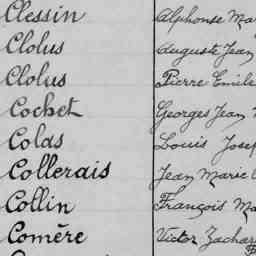 Clessin Alphonse Ma
Clolus Auguste Jean
Clolus Pierre Emile
Cochet Georges Jean
Colas Louis Josep
Collerais Jean Marie
Collin François Ma
Comère Victor Zachar